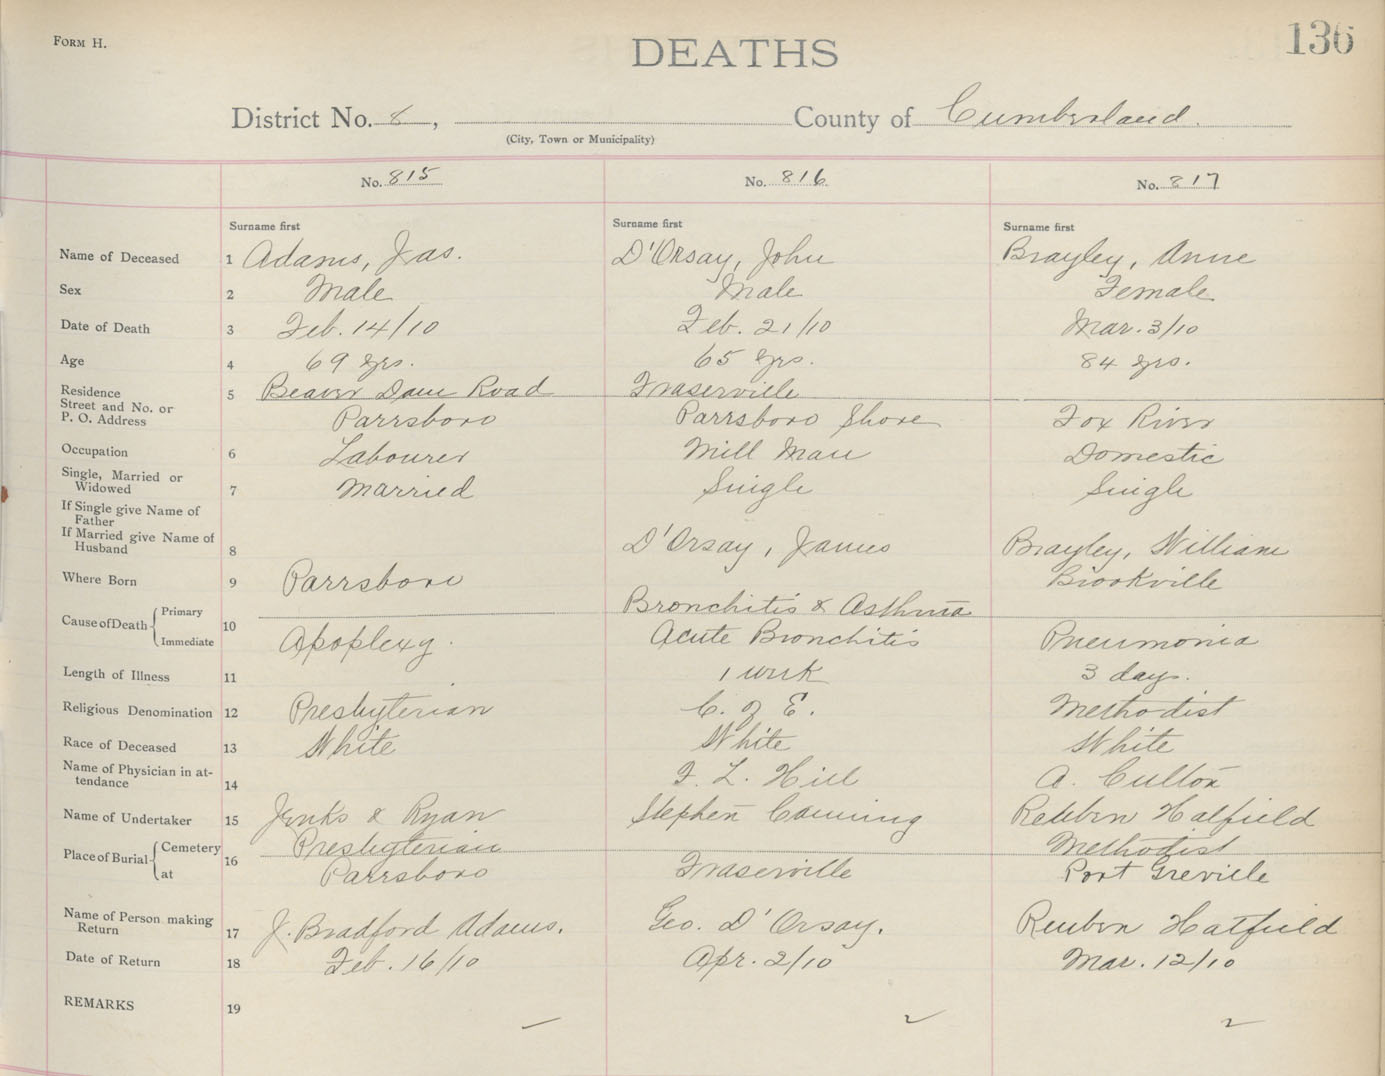 FORM H.
136
DEATHS
District No. 8, County of Cumberland.
(City, Town or Municipality)
No. 815 No. 816 No. 817
Surname first Surname first Surname first
Name of Deceased 1 Adams, Jas. D'Orsay, John Brayley, Anne
Sex 2 Male Male Female
Date of Death 3 Feb. 14/10 Feb. 21/10 Mar. 3/10
Age 4 69 yrs. 65 yrs. 84 yrs.
Residence 5 Beaver Dam Road Fraserville
Street and No. or
P. O. Address Parrsboro Parrsboro Shore Fox River
Occupation 6 Labourer Mill Man Domestic
Single, Married or
Widowed 7 Married Single Single
If Single give Name of
Father
If Married give Name of
Husband 8 D'Orsay, James Brayley, William
Where Born 9 Parrsboro Brookville
Cause of Death Primary 10 Bronchitis & Asthma
Immediate Apoplexy. Acute Bronchitis Pneumonia
Length of Illness 11 1 week 3 days.
Religious Denomination 12 Presbyterian C. of E. Methodist
Race of Deceased 13 White White White
Name of Physician in at-
tendance 14 F. L. Hill A. Culton
Name of Undertaker 15 Jenks & Ryan Stephen Canning Reuben Hatfield
Place of Burial Cemetery 16 Presbyterian Methodist
at Parrsboro Fraserville Port Greville
Name of Person making
Return 17 J. Bradford Adams. Geo. D'Orsay. Reuben Hatfield
Date of Return 18 Feb. 16/10 Apr. 2/10 Mar. 12/10
REMARKS 19